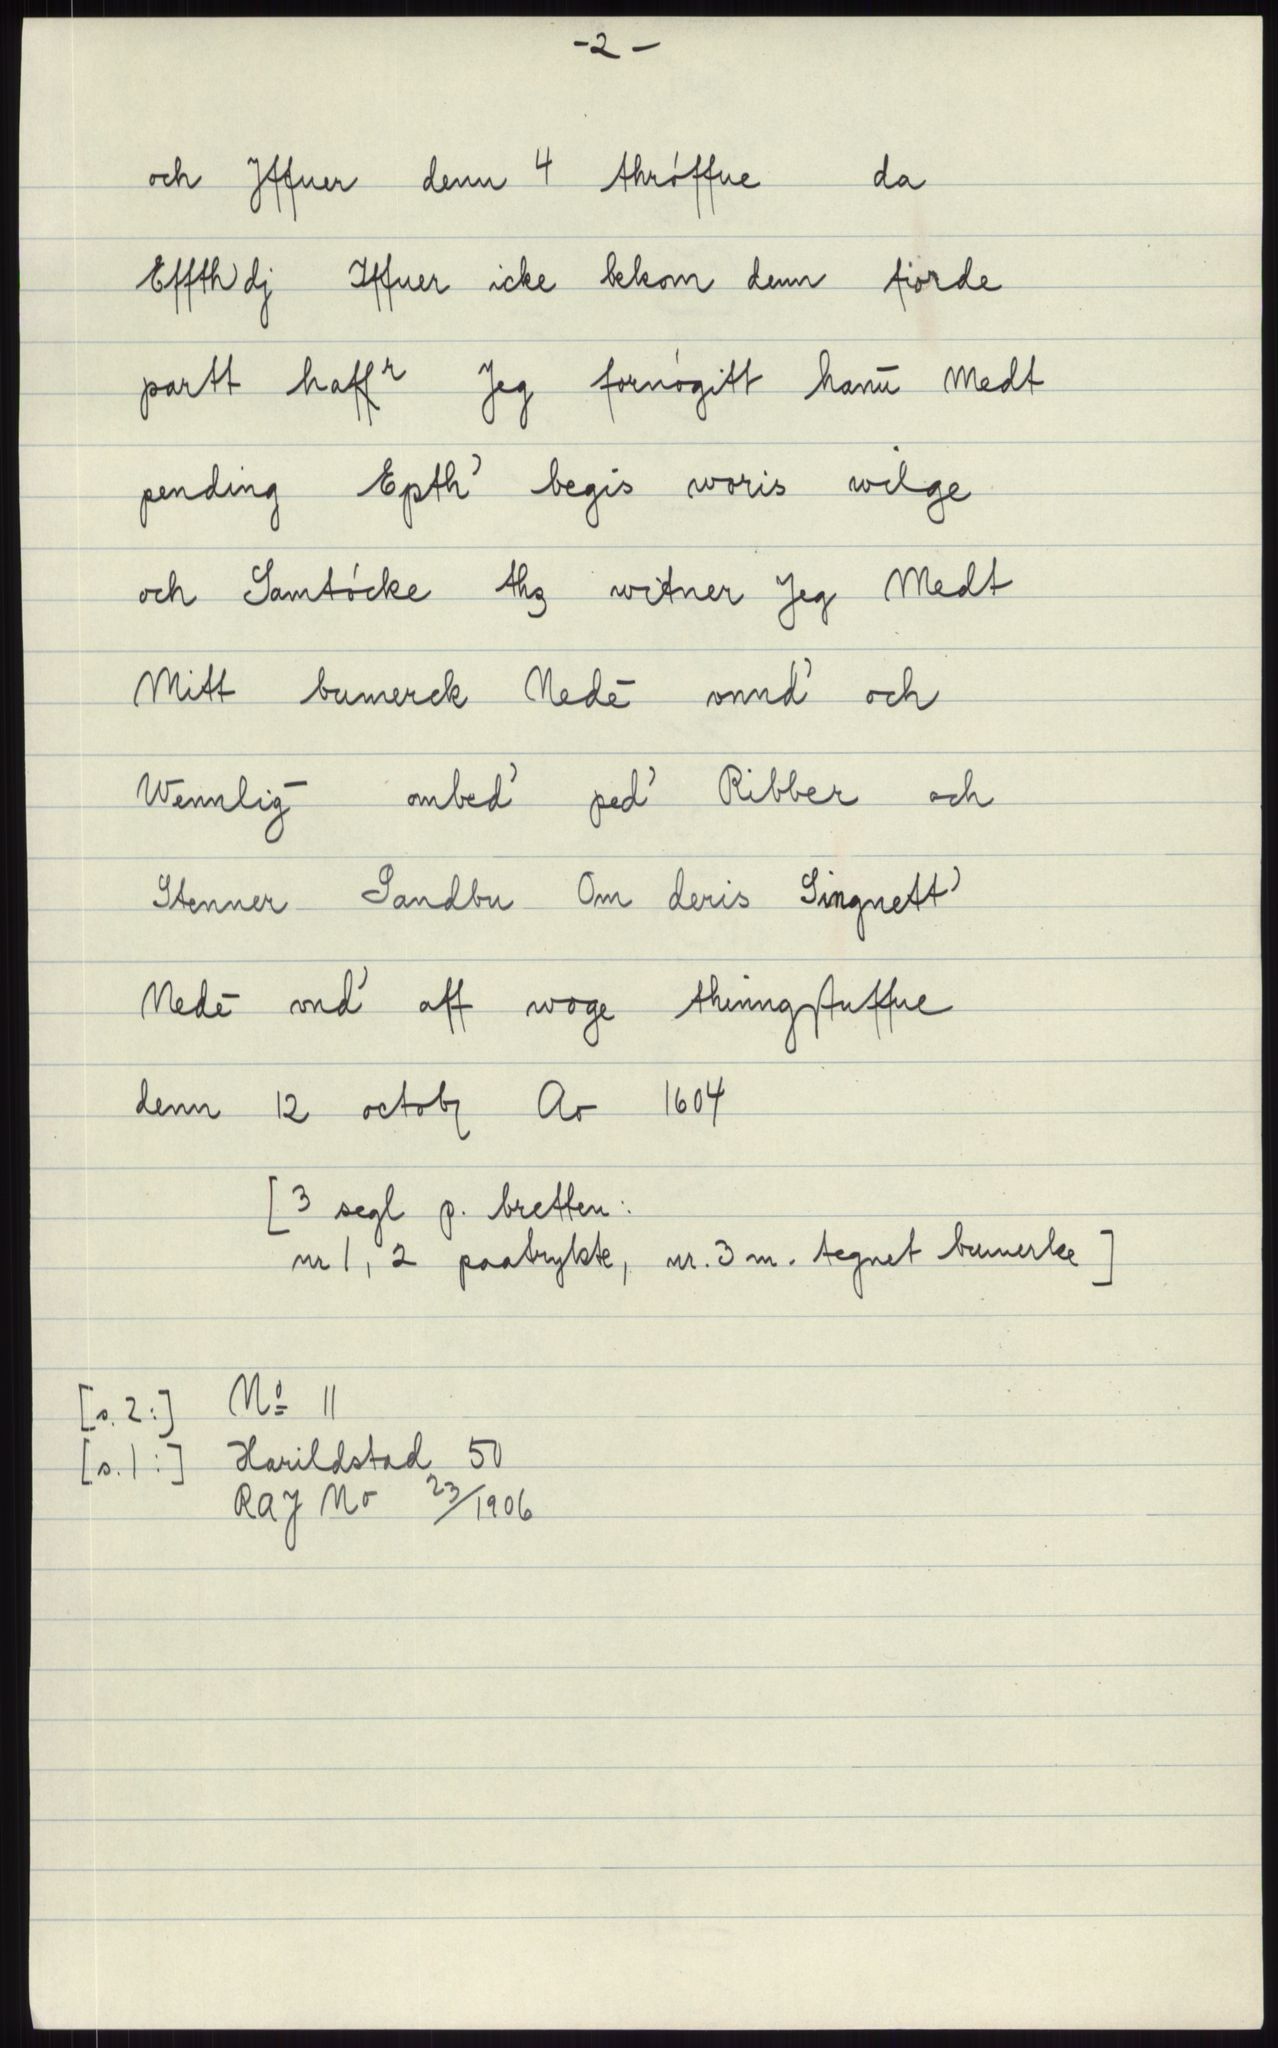 -2-
och Jffuer denn 4 thróffue da
Effth'dj Iffuer icke bekom denn fiorde
partt haffr Jeg fornógitt hanū Medt
pending Epth' begis woris wilge
och Samtócke thz witner Jeg Medt
Mitt bumerck Nedē vnnd' och
Wennliḡ ombed' ped' Ribber och
Stenner Sandbu Om deris Singnett'
Nedē vnd' aff woge thinngstuffue
denn 12 octob Ao 1604
[3 segl p. bretten:
nr 1, 2 paatrykte, nr. 3 m. tegnet bumerke]
[s. 2:] No 11
[s. 1:] Harildstad 50
RAJ No 23/1906